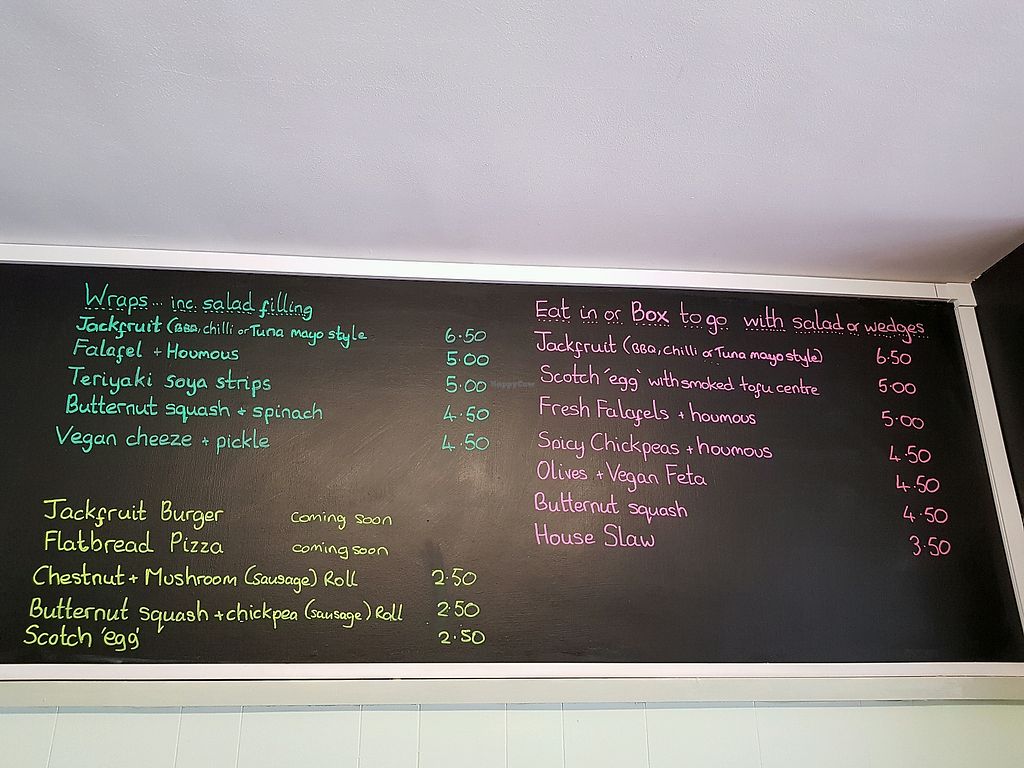 Wraps... inc. salad filling
Jackfruit (BBQ, chilli or Tuna mayo style 6.50
Falafel + Houmous 5.00
Teriyaki soya strips 5.00
Butternut squash + spinach 4.50
Vegan cheeze + pickle 4.50
Jackfruit Burger coming soon
Flatbread Pizza coming soon
Chestnut + Mushroom (sausage) Roll 2.50
Butternut squash + chickpea (sausage) Roll 2.50
Scotch 'egg' 2.50
Eat in or Box to go with salad or wedges
Jackfruit (BBQ, Chilli or Tuna mayo style) 6.50
Scotch 'egg' with smoked tofu centre 5.00
Fresh Falafels + houmous 5.00
Spicy Chickpeas + houmous 4.50
Olives + Vegan Feta 4.50
Butternut squash 4.50
House Slaw 3.50
HappyCow